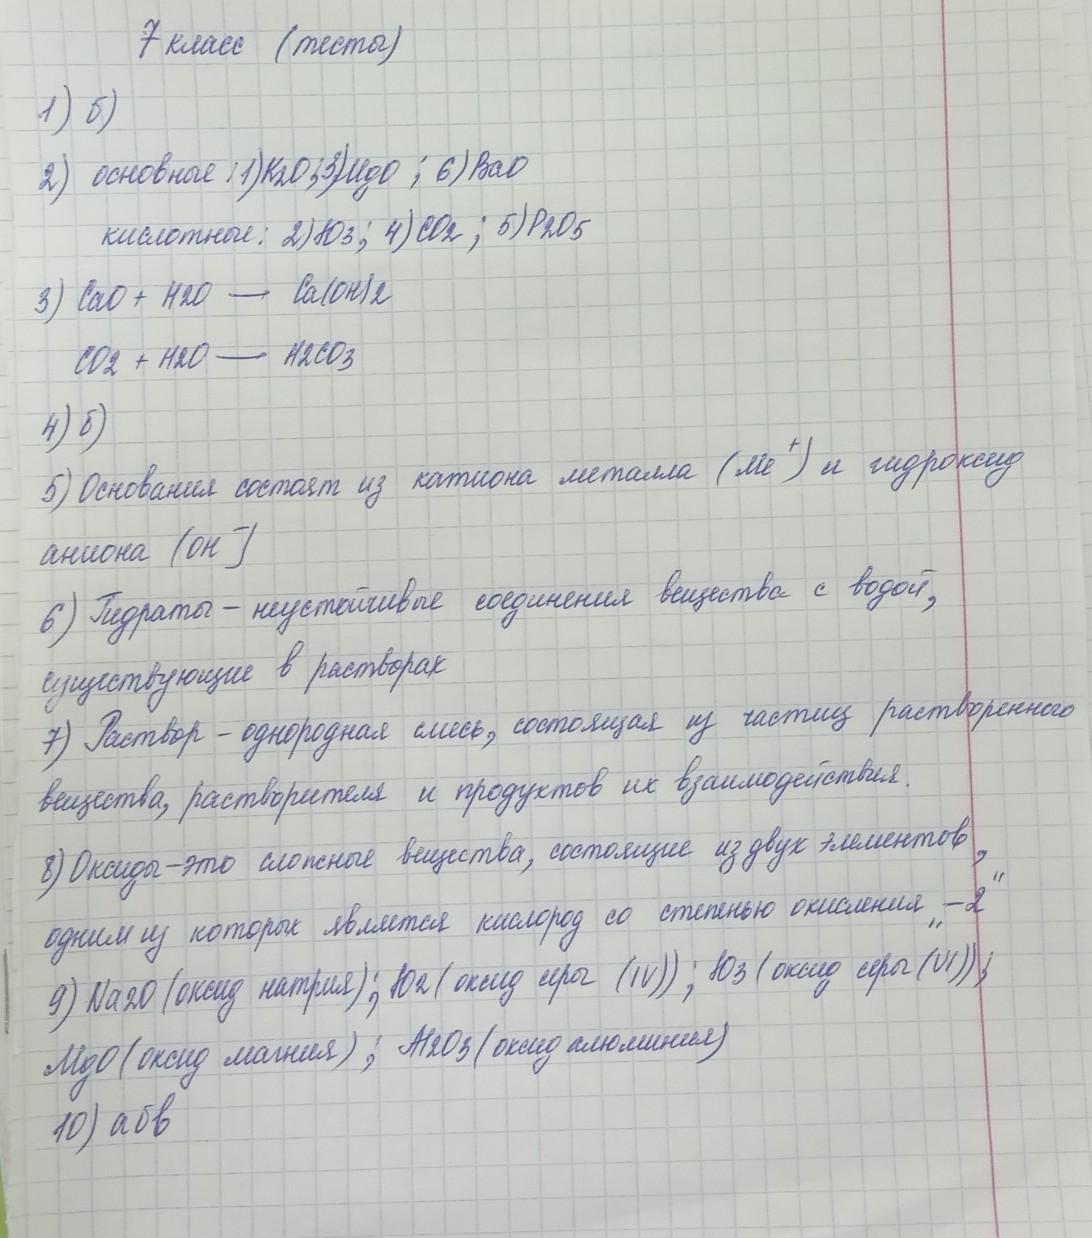 7 класс (тесты)
1) б)
2) основные: 1) K2O; 3) MgO ; 6) BaO
кислотные: 2) SO3; 4) CO2 ; 5) P2O5
3) CaO + H2O — Ca(OH)2
CO2 + H2O — H2CO3
4) б)
5) Основания состоят из катиона металла (Me⁺) и гидроксид
аниона (OH⁻)
6) Гидраты – неустойчивые соединения вещества с водой,
существующие в растворах
7) Раствор – однородная смесь, состоящая из частиц растворенного
вещества, растворителя и продуктов их взаимодействия.
8) Оксиды – это сложные вещества, состоящие из двух элементов,
одним из которых является кислород со степенью окисления „–2"
9) Na2O (оксид натрия); SO2 (оксид серы (IV)) ; SO3 (оксид серы (VI));
MgO (оксид магния) ; Al2O3 (оксид алюминия)
10) а б в